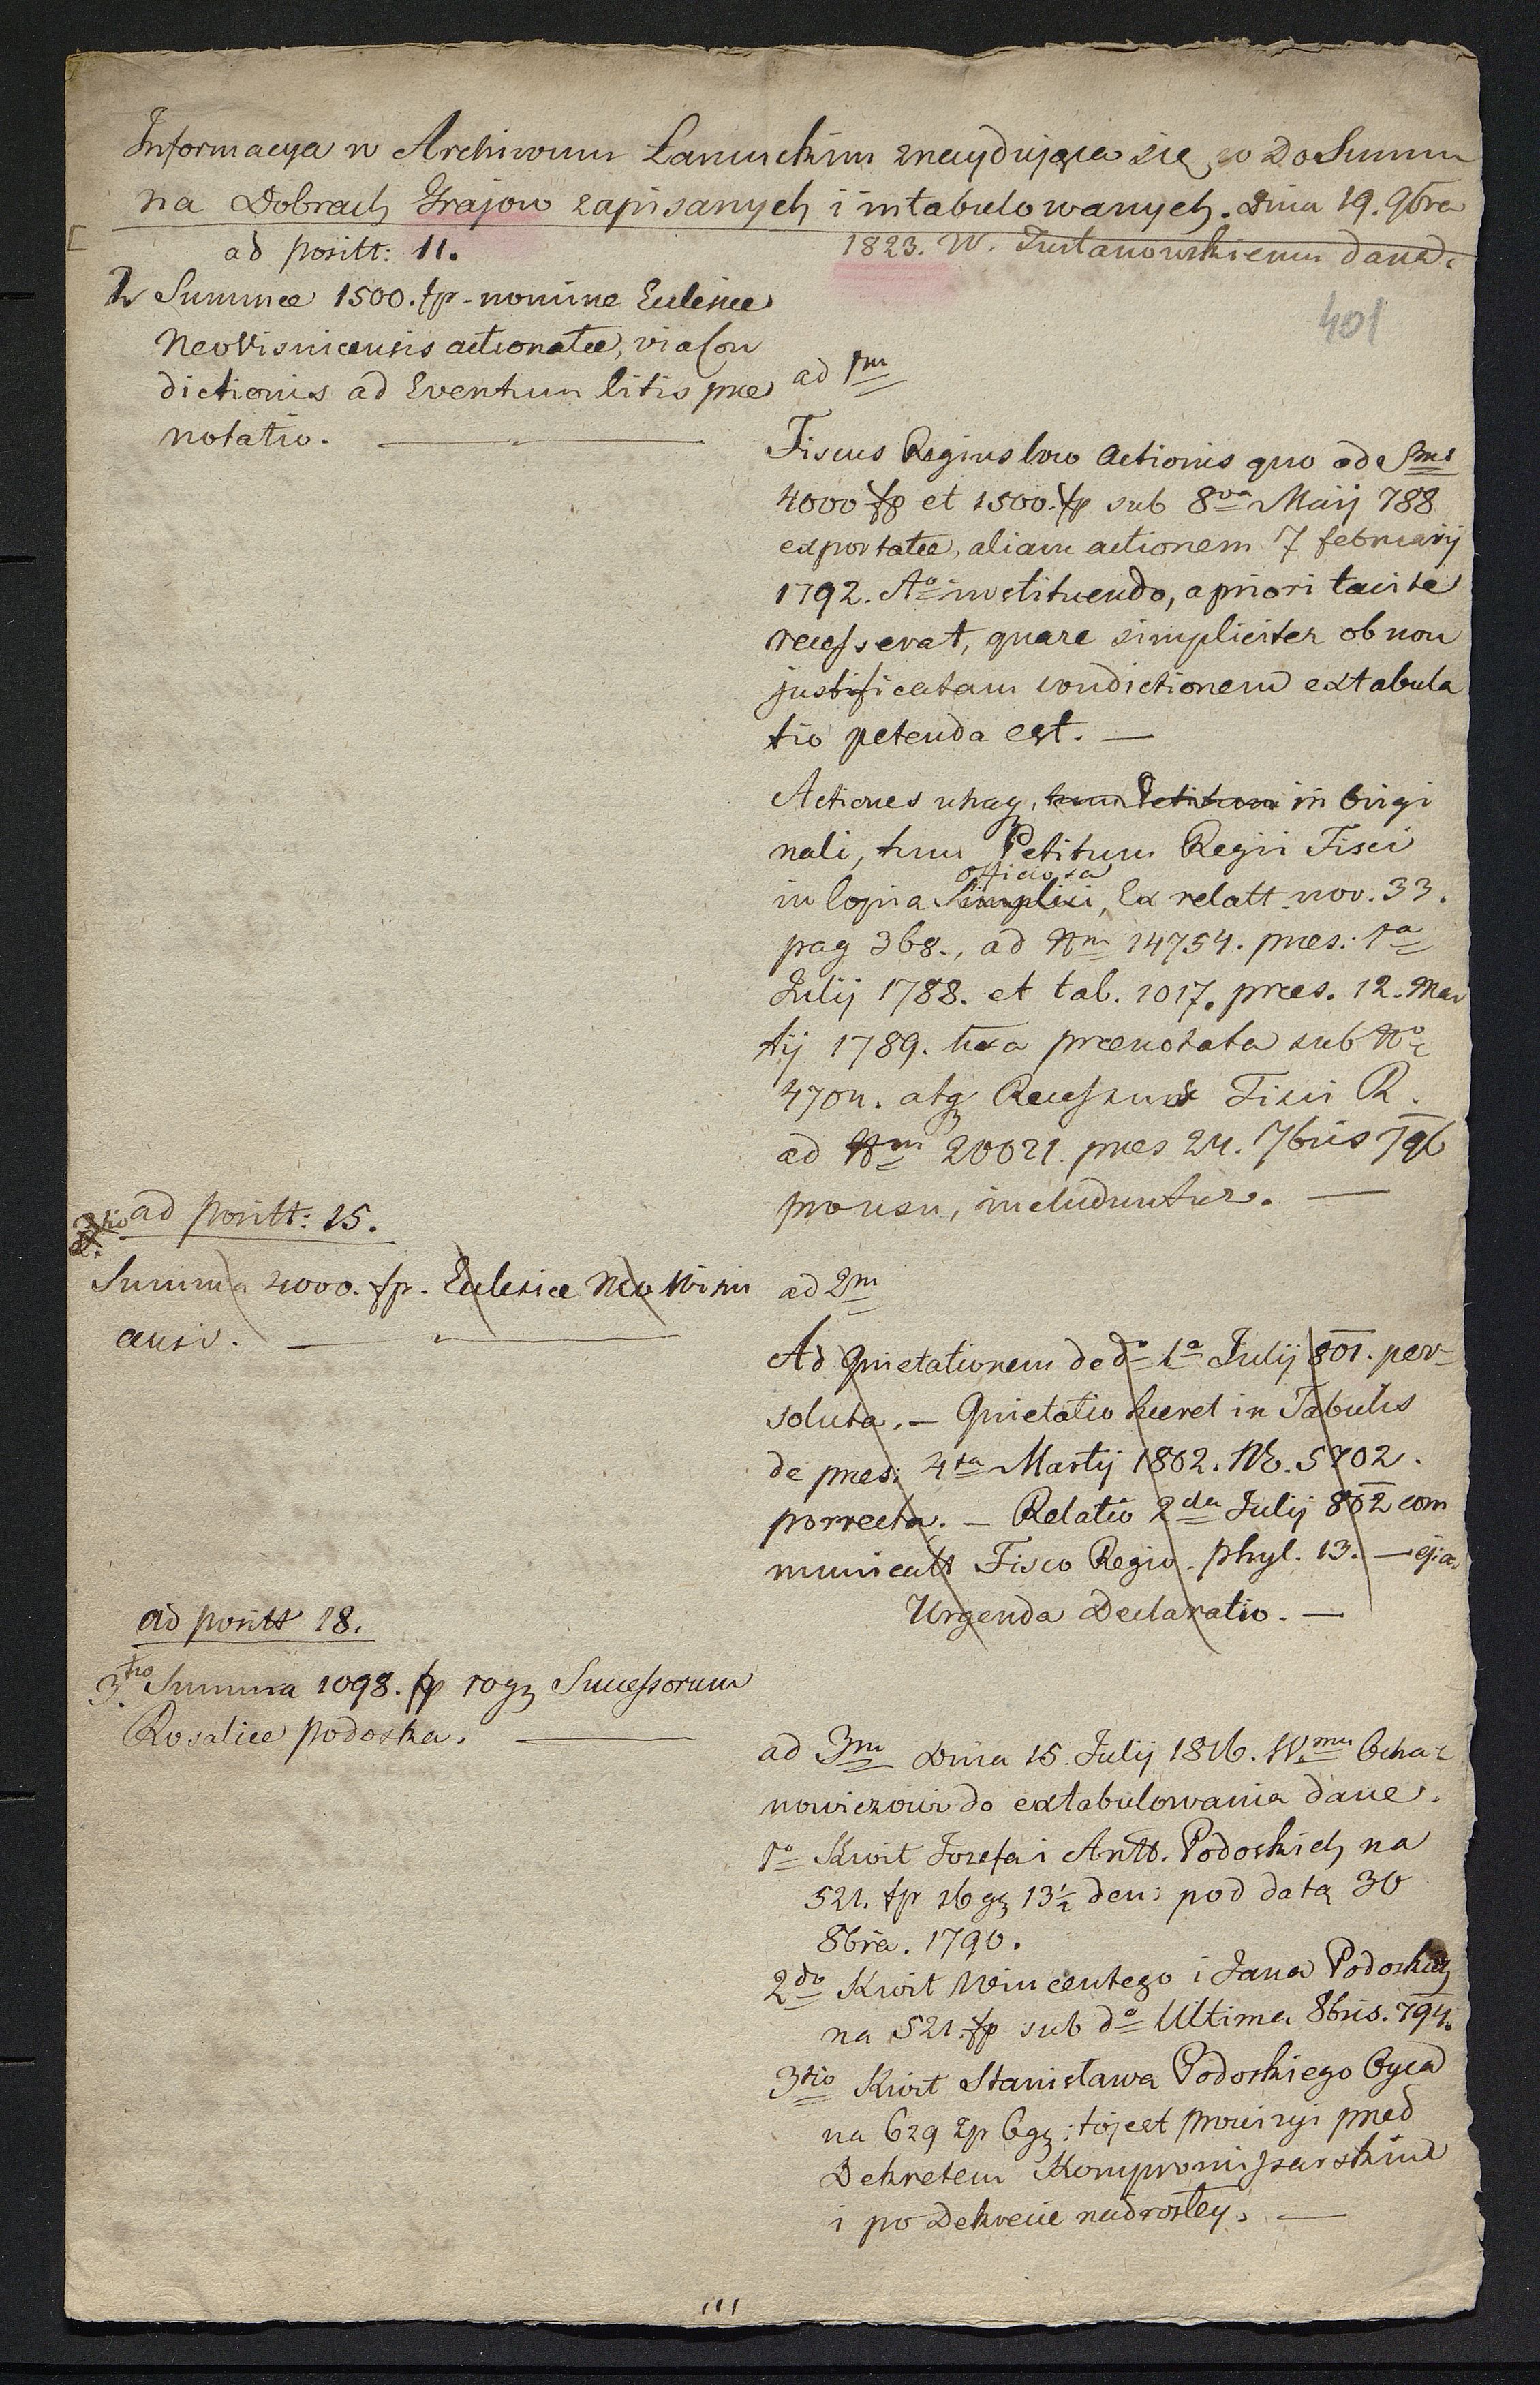 Informacya w Archiwum Łancuckim znaydująca się co do Summ
na Dobrach Grajow zapisanych i intabulowanych. Dnia 19. 9bra
1823. W. Justanowskiemu dana.
401
ad positt: 11.
Summæ 1500. fp. nomine Ecclesiæ
NeoVisnicensis actionatæ, via Con
dictionis ad Eventum litis præ
notatio. —
ad 1m
Fiscus Regius loco Actionis quo ad Sms
4000 fp et 1500. fp sub 8va Maij 788
exportatæ, aliam actionem 7 februarij
1792. Ao instituendo, a priori tacite
recesserat, quare simpliciter ob non
justificatam condictionem extabula
tio petenda est. —
Actiones utraq, tum Petitum in Origi
nali, tum Petitum Regii Fisci
officiosa
in Copia Simplici, Ex relatt nov. 33.
pag 368., ad Nm 14754. præs. 1a
Julij 1788. et tab. 1017. præs. 12. Mar
tij 1789. prænotata sub No
4704. atq Recessum Fisci R.
ad Nm 20021 præs 24. 7bris 796
pro usu, includuntur. —
ad positt: 15.
Summa 4000. fp. Ecclesiæ Neo Wisni
censi. —
ad 2m
Ad Quietationem de do 1a Julij 801. per
soluta. — Quietatio hæret in Tabulis
de præs: 4ta Martij 1802. Nr. 5702.
porrecta. — Relatio 2da Julij 802 com
municatt Fisco Regio. phyl. 13. — ejia
Urgenda Declaratio. —
ad positt 18.
3tio Summa 1098. fp 10 gz Successorum
Rosaliæ Podoska. —
ad 3m Dnia 15. Julij 1816. W.mu Ocha-
nowiczowi do extabulowania dane.
1o Kwit Jozefa i Antt. Podoskich na
521. fp 16 gz 13½ den: pod datą 30
8bra. 1790.
2do Kwit Wincentego i Jana Podoskich
na 521. fp sub do Ultima 8bris. 794.
3tio Kwit Stanisława Podoskiego Oyca
na 629 zp 6 gz; to jest prowizyi przed
Dekretem Kompromissarskim
i po Dekrecie nadrosłey. —